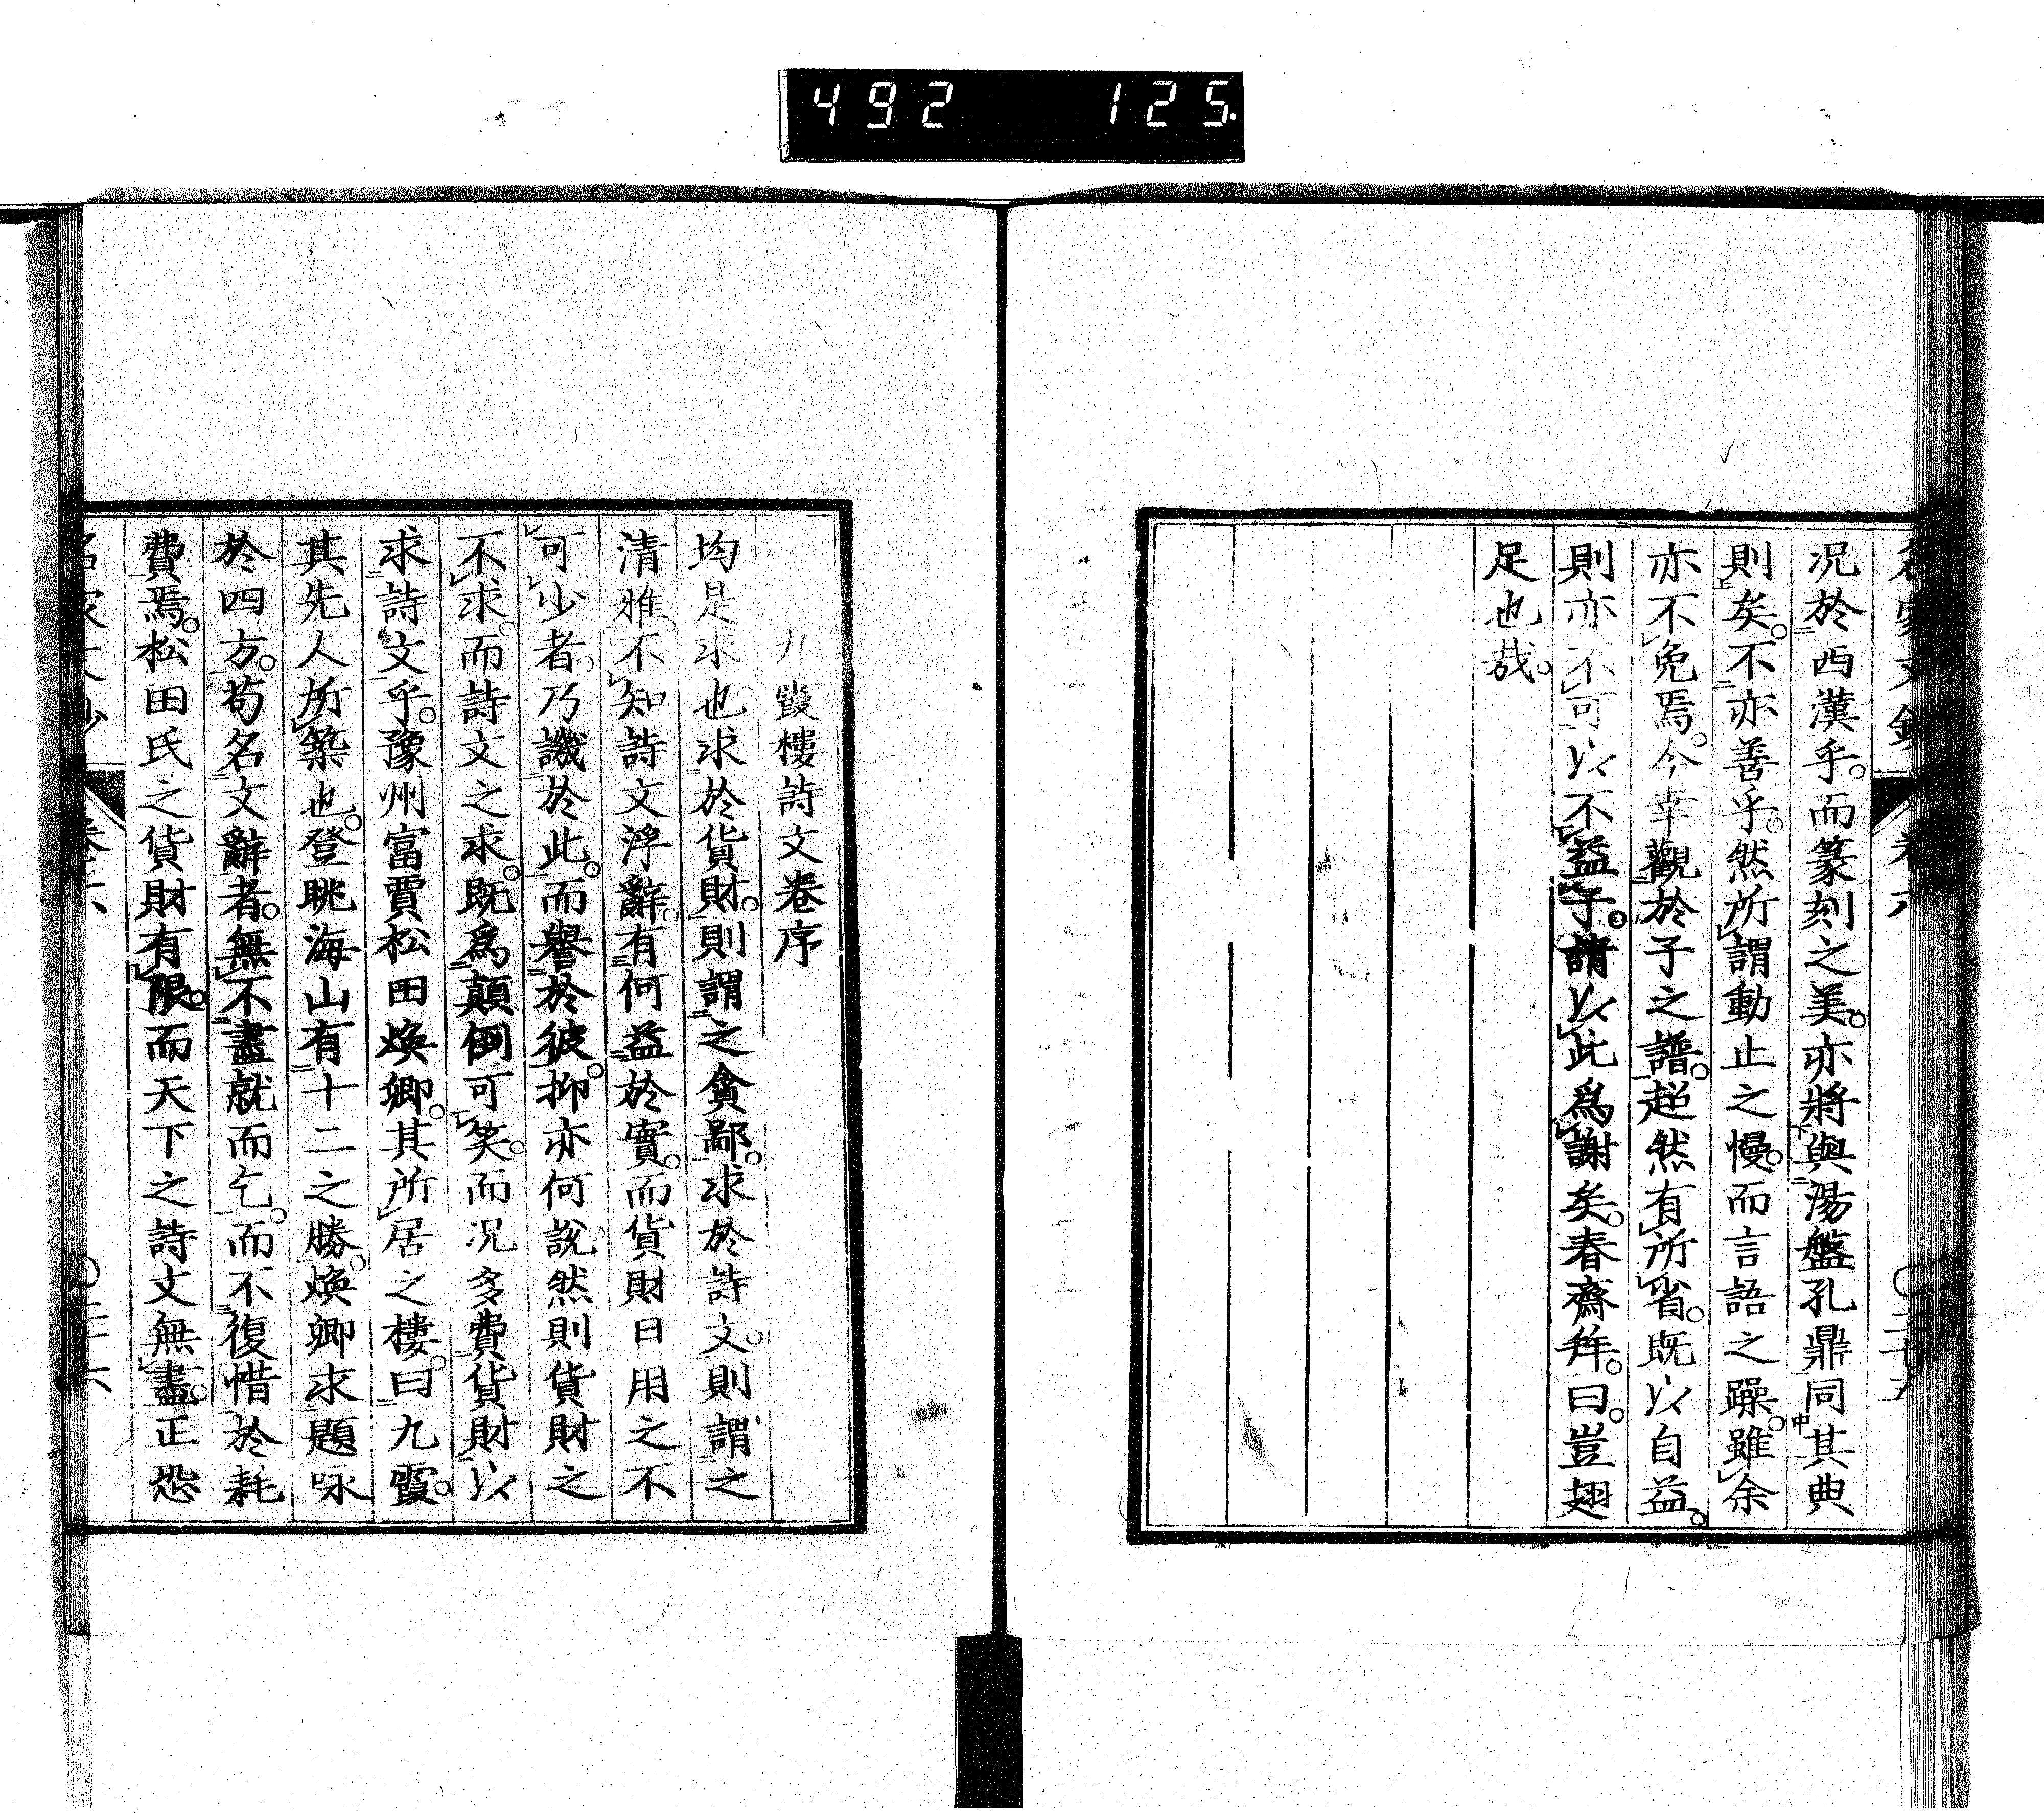 492 125.
名家文鈔 卷六
况於西漢乎。而篆刻之美。亦將與湯盤孔鼎同其典
則矣。不亦善乎。然所謂動止之慢。而言語之躁。雖余
亦不免焉。今幸觀於子之譜。超然有所省。既以自益。
則亦不可以不益子。請以此爲謝矣。春齋拜。曰。豈翅
足也哉。
九霞樓詩文卷序
均是求也求於貨財。則謂之貪鄙。求於詩文。則謂之
清雅。不知詩文浮辭。有何益於實。而貨財日用之不
可少者。乃譏於此。而譽於彼。抑亦何說。然則貨財之
不求。而詩文之求。既爲顛倒可笑。而况多費貨財以
求詩文乎。豫州富賈松田煥卿。其所居之樓。曰九霞。
其先人所築也。登眺海山有十二之勝。煥卿求題咏
於四方。苟名文辭者。無不盡就而乞。而不復惜於耗
費焉。松田氏之貨財有限。而天下之詩文無盡。正恐
名家文鈔 卷六